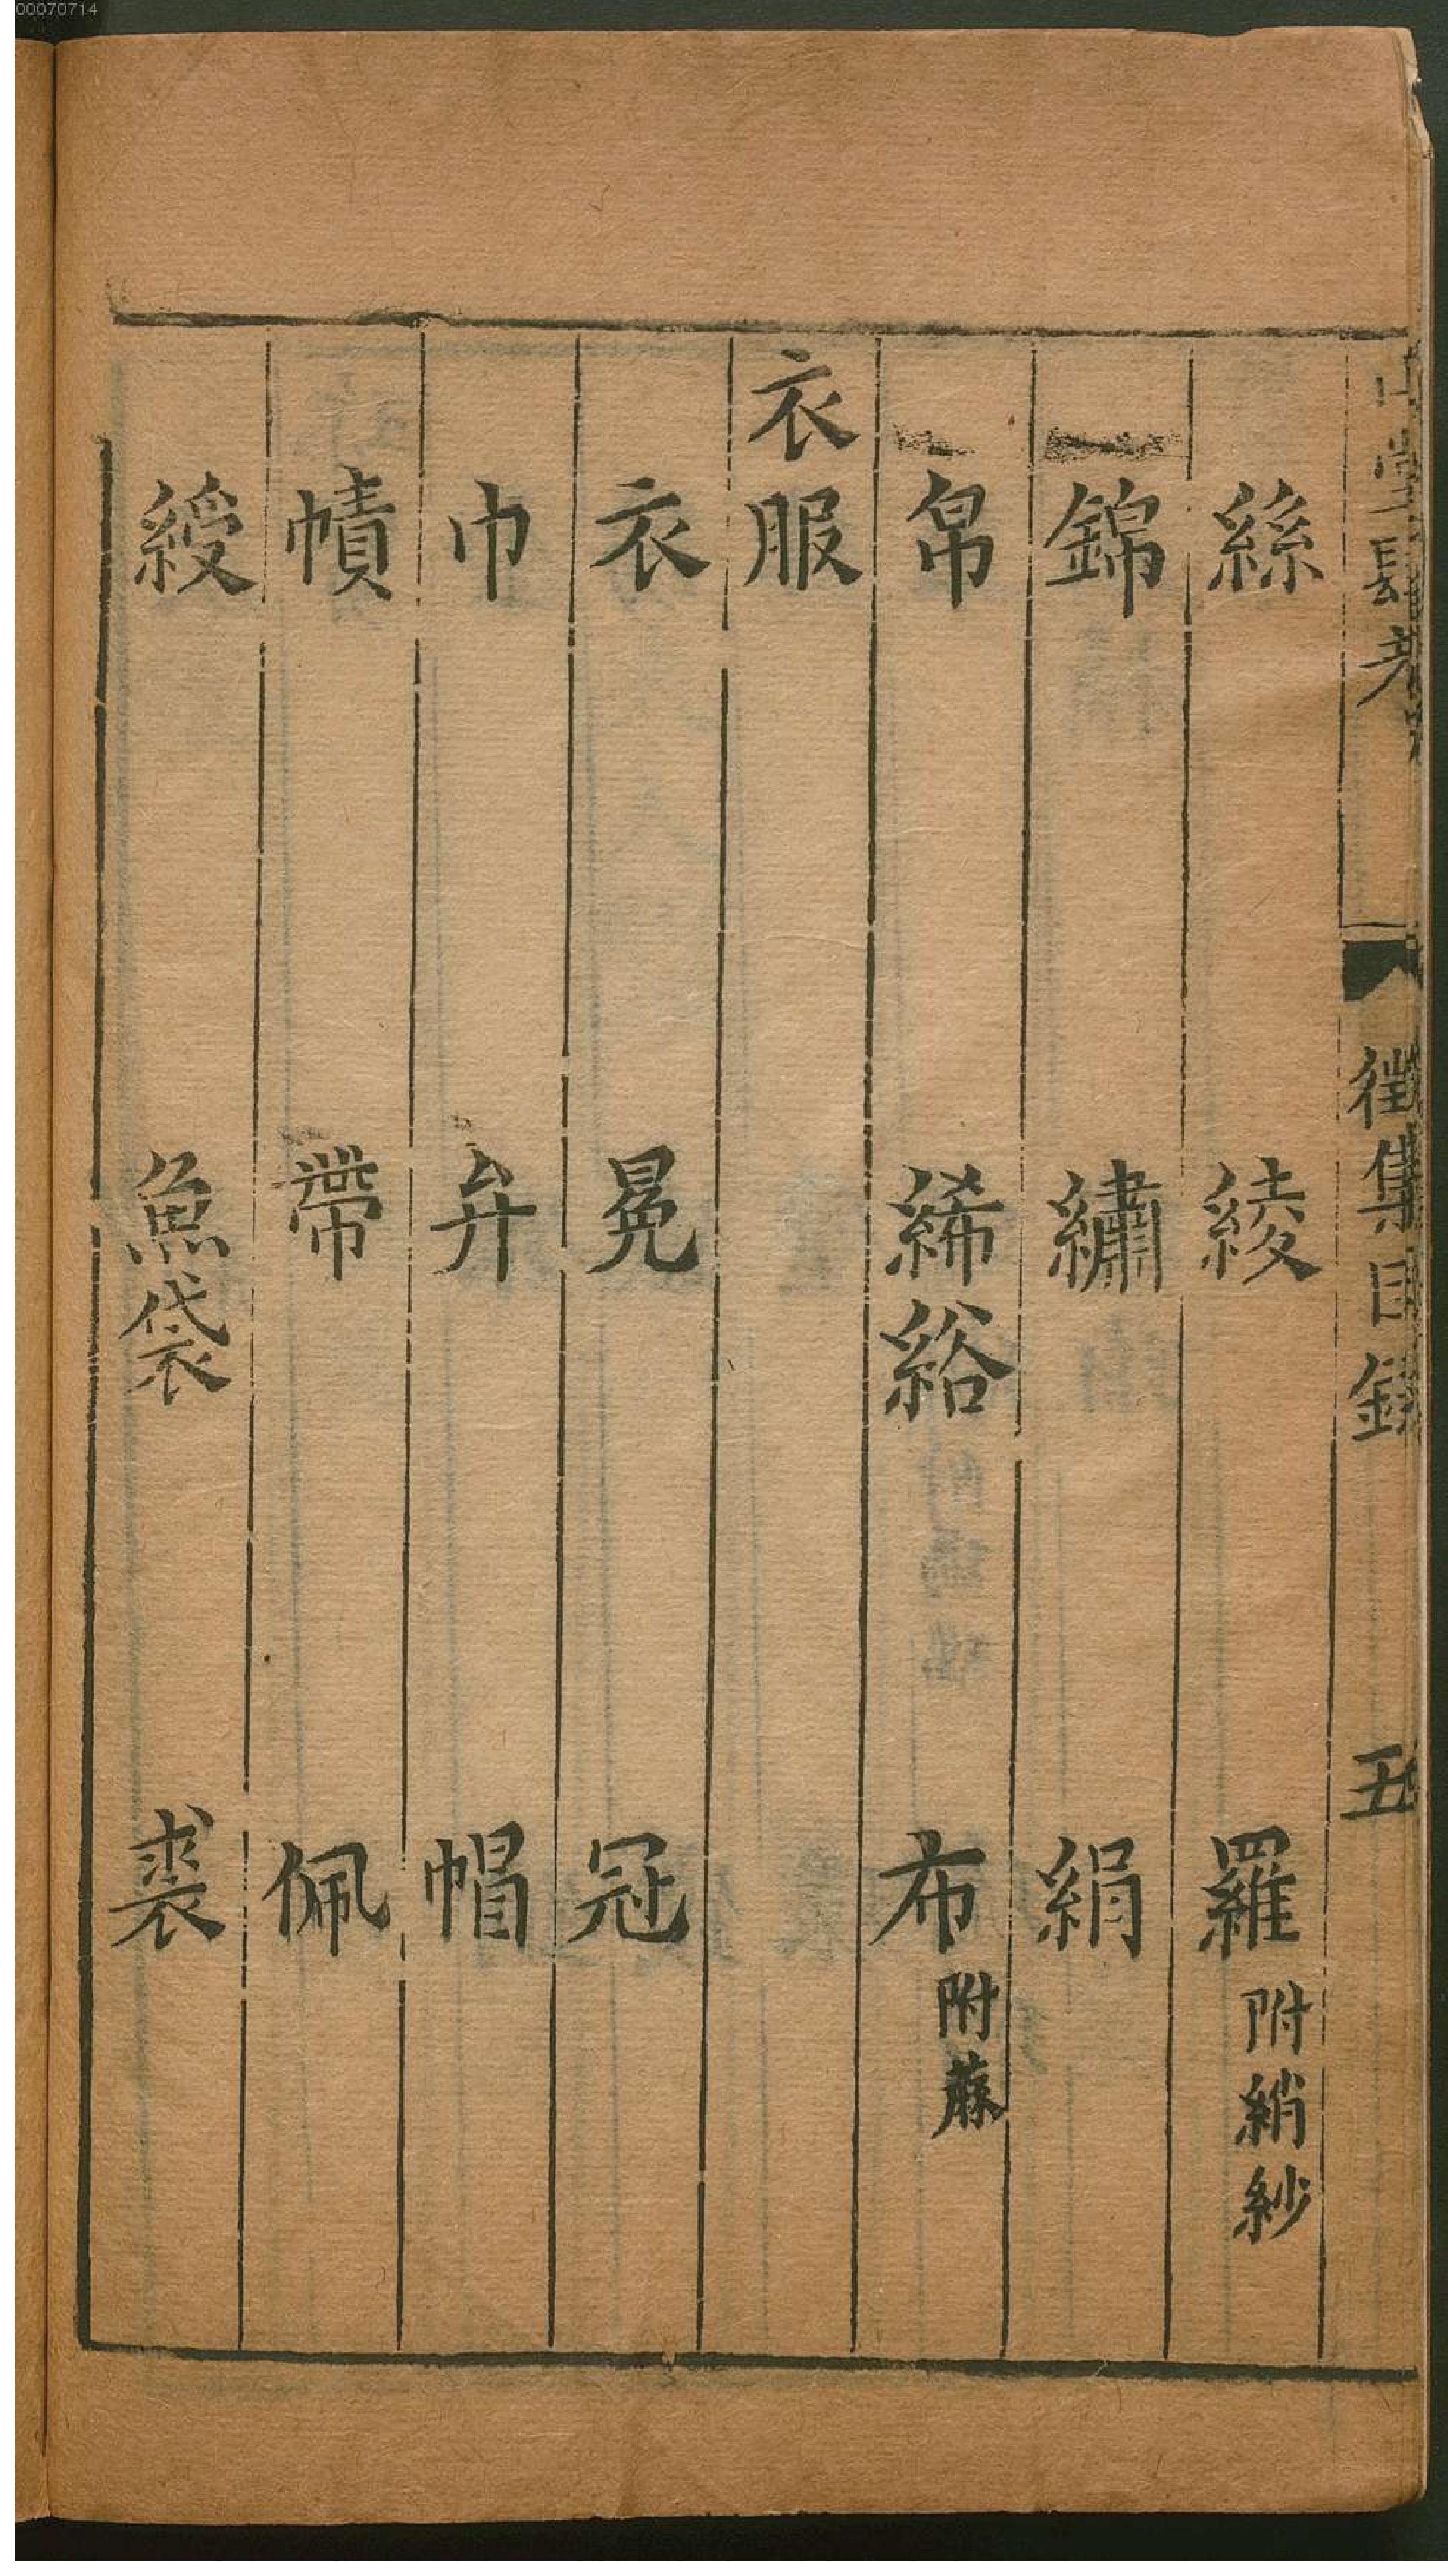 00070714
山堂肆考 徵集目録 五
絲 綾 羅附綃紗
錦 繡 絹
帛 絺綌 布附蔴
衣服
衣 冕 冠
巾 弁 帽
幘 帶 佩
綬 魚袋 裘